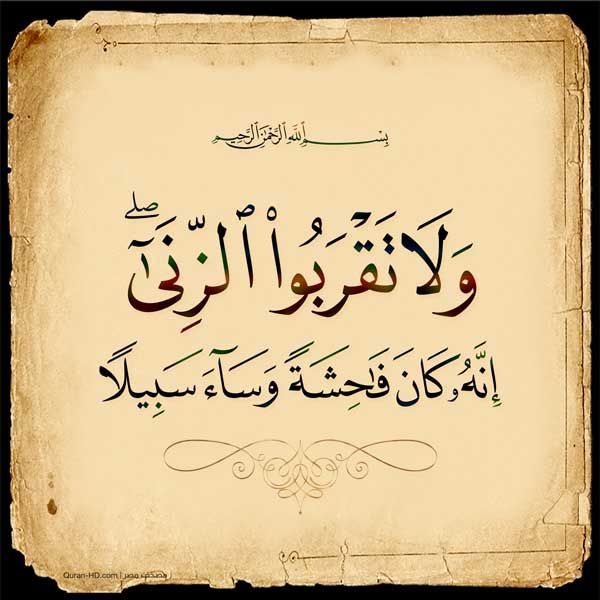 بِسْمِ ٱللَّهِ ٱلرَّحْمَٰنِ ٱلرَّحِيمِ
وَلَا تَقْرَبُوا۟ ٱلزِّنَىٰٓ ۖ
إِنَّهُۥ كَانَ فَٰحِشَةً وَسَآءَ سَبِيلًا
Quran-HD.com | مصحف مصر